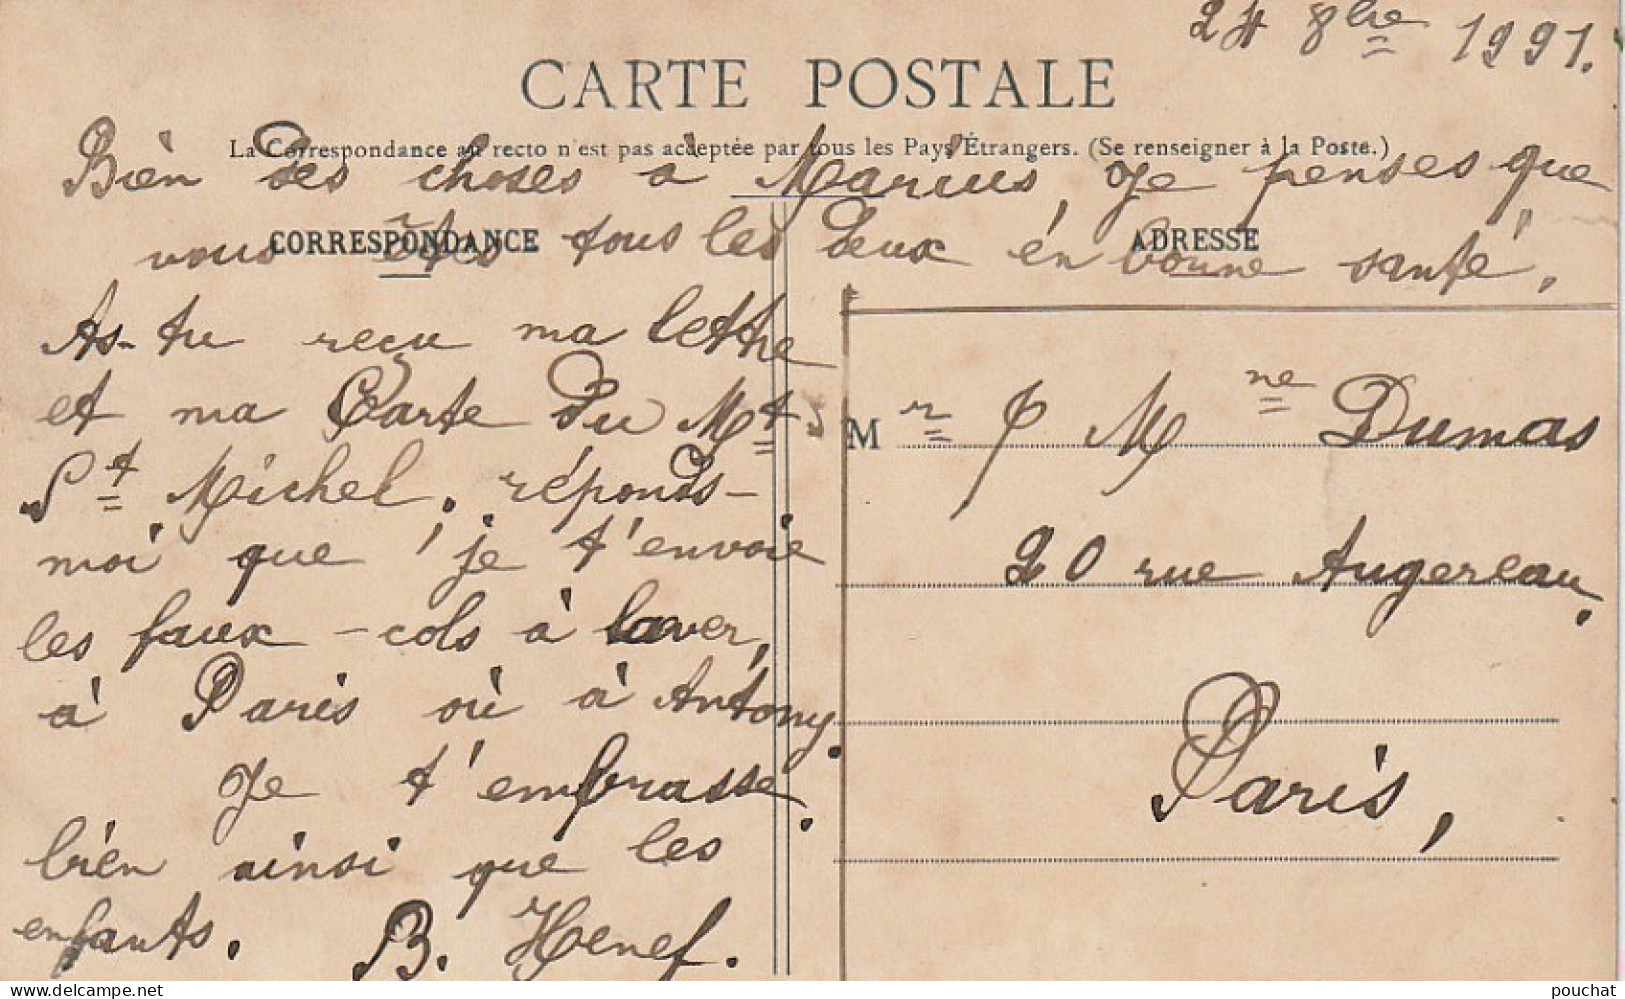 24 8bre 1991.
CARTE POSTALE
La Correspondance au recto n'est pas acceptée par tous les Pays Étrangers. (Se renseigner à la Poste.)
Bièn des choses à Marius, Je penses que
vous êtes tous les deux én bonne santé,
CORRESPONDANCE
ADRESSE
As-tu reçu ma lettre
et ma Carte du Mt
St Michel, réponds-
moi que je t'envoie
les faux-cols à laver,
à Paris où à Antony.
Je t'embrasse
bién ainsi que les
enfants. B. Henef.
Mr & Mme Dumas
20 rue Augereau,
Paris,
pouchat